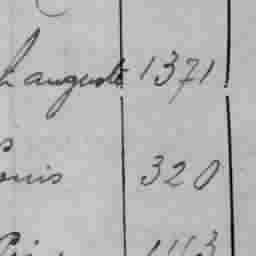 h auguste 1371
ouis 320